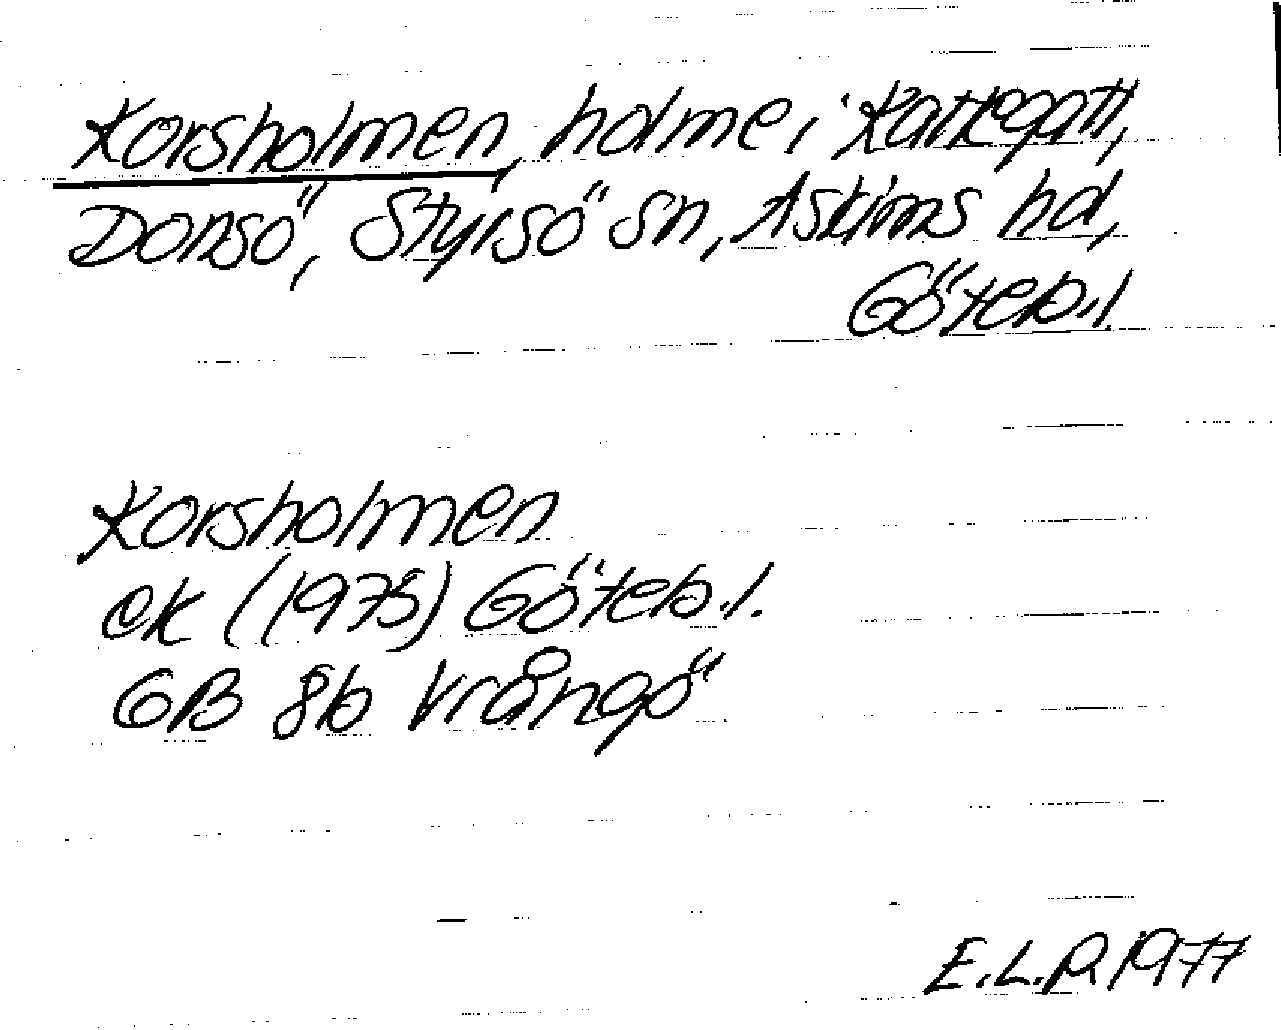 Korsholmen, holme i Kattegatt,
Donsö, Styrsö sn, Askims hd,
Göteb.l
Korsholmen
ek (1975) Göteb.l.
6B 8b Vrångö
E.L.P. 1977